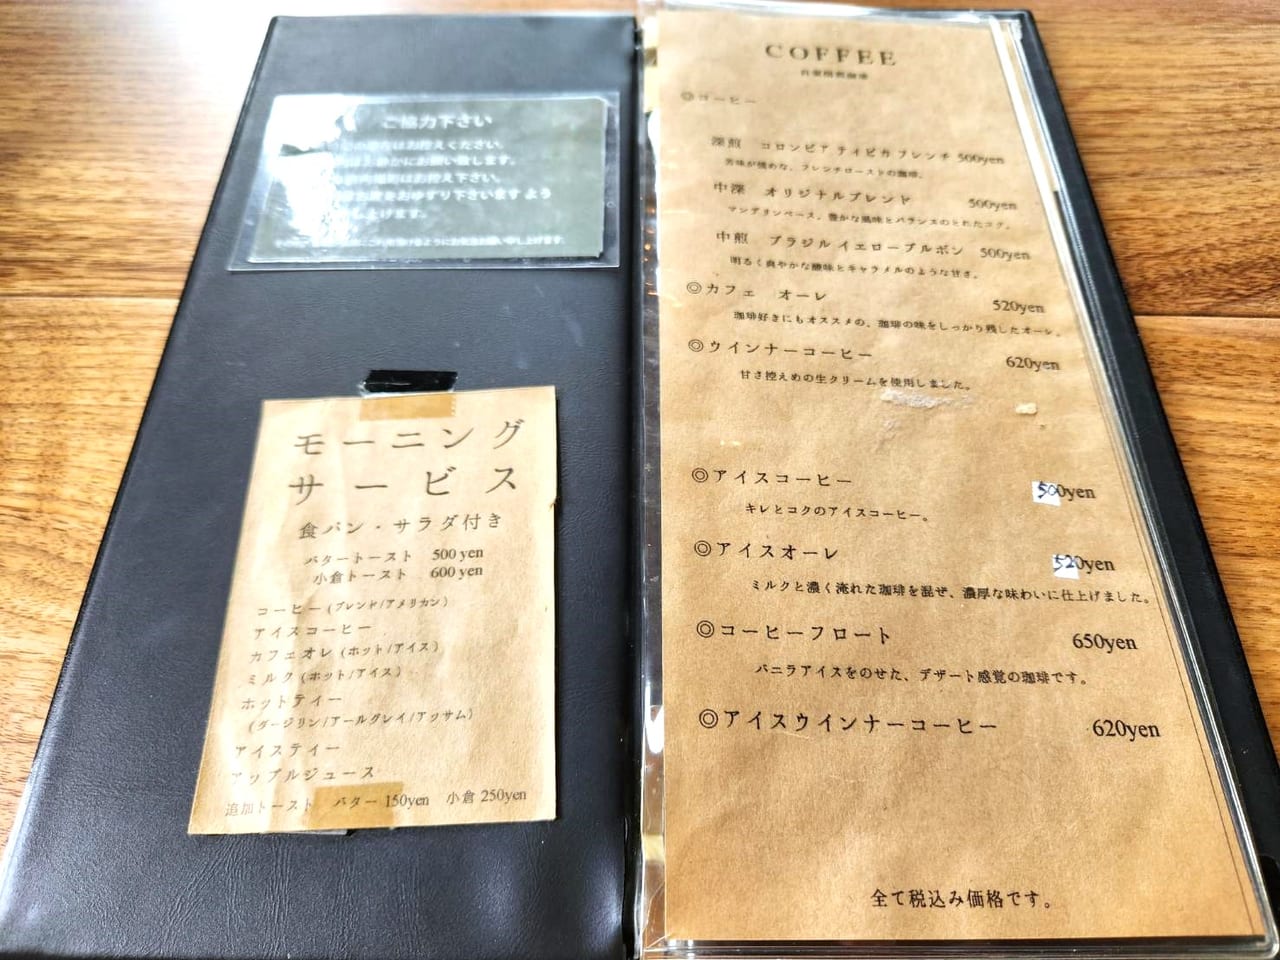 ご協力下さい
はお控えください。
にお願い致します。
はお控え下さい。
お席をおゆずり下さいますよう
し上げます。
モーニング
サービス
食パン・サラダ付き
バタートースト 500 yen
小倉トースト 600 yen
コーヒー(ブレンド/アメリカン)
アイスコーヒー
カフェオレ(ホット/アイス)
ミルク(ホット/アイス)
ホットティー
(ダージリン/アールグレイ/アッサム)
アイスティー
アップルジュース
追加トースト バター 150yen 小倉 250yen
COFFEE
自家焙煎珈琲
◎コーヒー
深煎 コロンビア ティピカ フレンチ 500yen
苦味が強めな、フレンチローストの珈琲。
中深 オリジナルブレンド 500yen
マンデリンベース。豊かな風味とバランスのとれたコク。
中煎 ブラジル イエローブルボン 500yen
明るく爽やかな酸味とキャラメルのような甘さ。
◎カフェ オーレ 520yen
珈琲好きにもオススメの、珈琲の味をしっかり残したオーレ。
◎ウインナーコーヒー 620yen
甘さ控えめの生クリームを使用しました。
◎アイスコーヒー 500yen
キレとコクのアイスコーヒー。
◎アイスオーレ 520yen
ミルクと濃く淹れた珈琲を混ぜ、濃厚な味わいに仕上げました。
◎コーヒーフロート 650yen
バニラアイスをのせた、デザート感覚の珈琲です。
◎アイスウインナーコーヒー 620yen
全て税込み価格です。